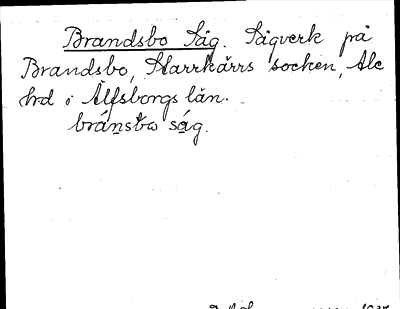 Brandsbo Såg. Sågverk på
Brandsbo, Starrkärrs socken, Ale
hd i Älfsborgs län.
bránsbω ság.